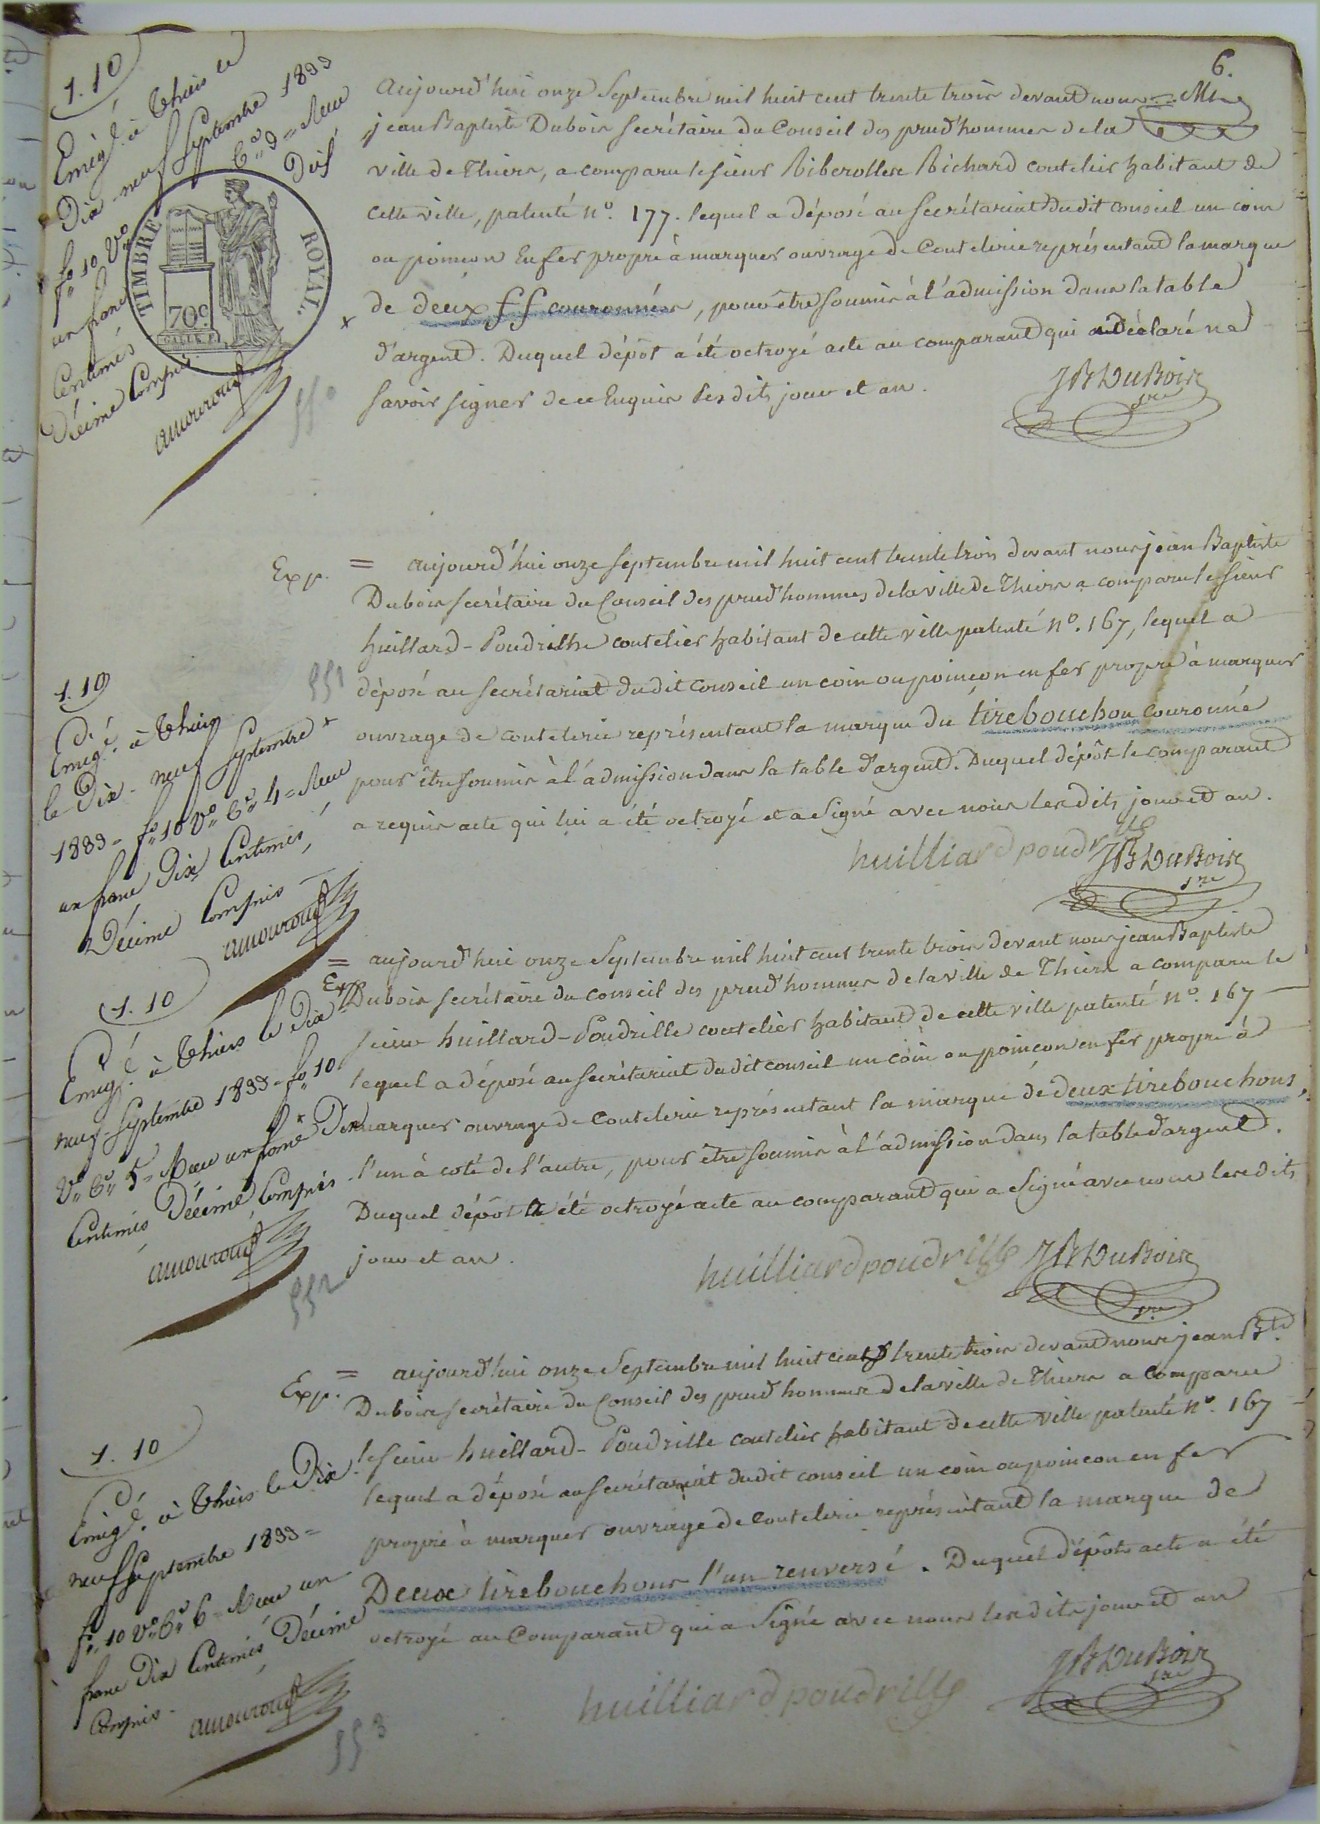 6.
1.10
Enreg.é à Thiers le
Dix-neuf Septembre 1833
f.o 10 V.o C.e 3 = Reçu
un franc Dix
Centimes
Décime Compris
amouroux
TIMBRE ROYAL.
70c
550
Aujourd'hui onze Septembre mil huit cent trente trois devant nous M.
jean Baptiste Dubois Secrétaire du Conseil des prud'hommes de la
ville de Thiers, a comparu le sieur Riberolles Richard coutelier habitant de
cette ville, patenté n.o 177. lequel a déposé au Secrétariat dudit conseil un coin
ou poincon en fer propre à marquer ouvrage de Coutelerie représentant la marque
x de deux ff couronnés, pour être soumis à l'admission dans la table
d'argent. Duquel dépôt a été octroyé acte au comparant qui a déclaré ne
savoir signer de ce Enquis Lesdits jour et an.
JB DuBois
sre
Exp. = aujourd'hui onze septembre mil huit cent trente trois devant nous jean Baptiste
Dubois secrétaire du Conseil des prud'hommes de la ville de Thiers a comparu le sieur
huillard-Poudrille coutelier habitant de cette ville patenté n.o 167, lequel a
déposé au Secrétariat dudit conseil un coin ou poincon en fer propre à marquer
ouvrage de coutelerie représentant la marque du tirebouchon couronné
pour être soumis à l'admission dans la table d'argent. Duquel dépôt le comparant
a requis acte qui lui a été octroyé et a Signé avec nous Lesdits jour et an.
huilliard poudrille JB DuBois
sre
551
1.10
Enreg.é à Thiers
le Dix-neuf Septembre x
1833 = f.o 10 V.o C.e 4 = Reçu
un franc Dix Centimes,
Décime Compris
amouroux
= aujourd'hui onze Septembre mil huit cent trente trois devant nous jean Baptiste
Exp. Dubois secrétaire du conseil des prud'hommes de la ville de Thiers a comparu le
sieur huillard-Poudrille coutelier habitant de cette ville patenté n.o 167
lequel a déposé au Secrétariat dudit conseil un coin ou poincon en fer propre à
marquer ouvrage de Coutelerie représentant la marque de deux tirebouchons,
l'un à coté de l'autre, pour être soumis à l'admission dans la table d'argent.
Duquel dépôt a été octroyé acte au comparant qui a Signé avec nous lesdits
jour et an.
huilliard poudrille JB DuBois
sre
1.10
Enreg.é à Thiers le Dix
neuf Septembre 1833 = f.o 10
V.o C.e 5 = Reçu un franc Dix
Centimes Décime Compris
amouroux
552
Exp. = aujourd'hui onze Septembre mil huit cent trente trois devant nous jean B.te
Dubois secrétaire du Conseil des prud'hommes de la ville de Thiers a comparu
le sieur huillard-Poudrille coutelier habitant de cette ville patenté n.o 167
lequel a déposé au Secrétariat dudit conseil un coin ou poincon en fer
propre à marquer ouvrage de Coutelerie représentant la marque de
Deux tirebouchons l'un renversé. Duquel dépôt acte a été
octroyé au Comparant qui a Signé avec nous lesdits jour et an
huilliard poudrille
JB DuBois
sre
1.10
Enreg.é à Thiers le Dix
neuf Septembre 1833 =
f.o 10 V.o C.e 6 = Reçu un
franc Dix Centimes Décime
Compris.
amouroux
553